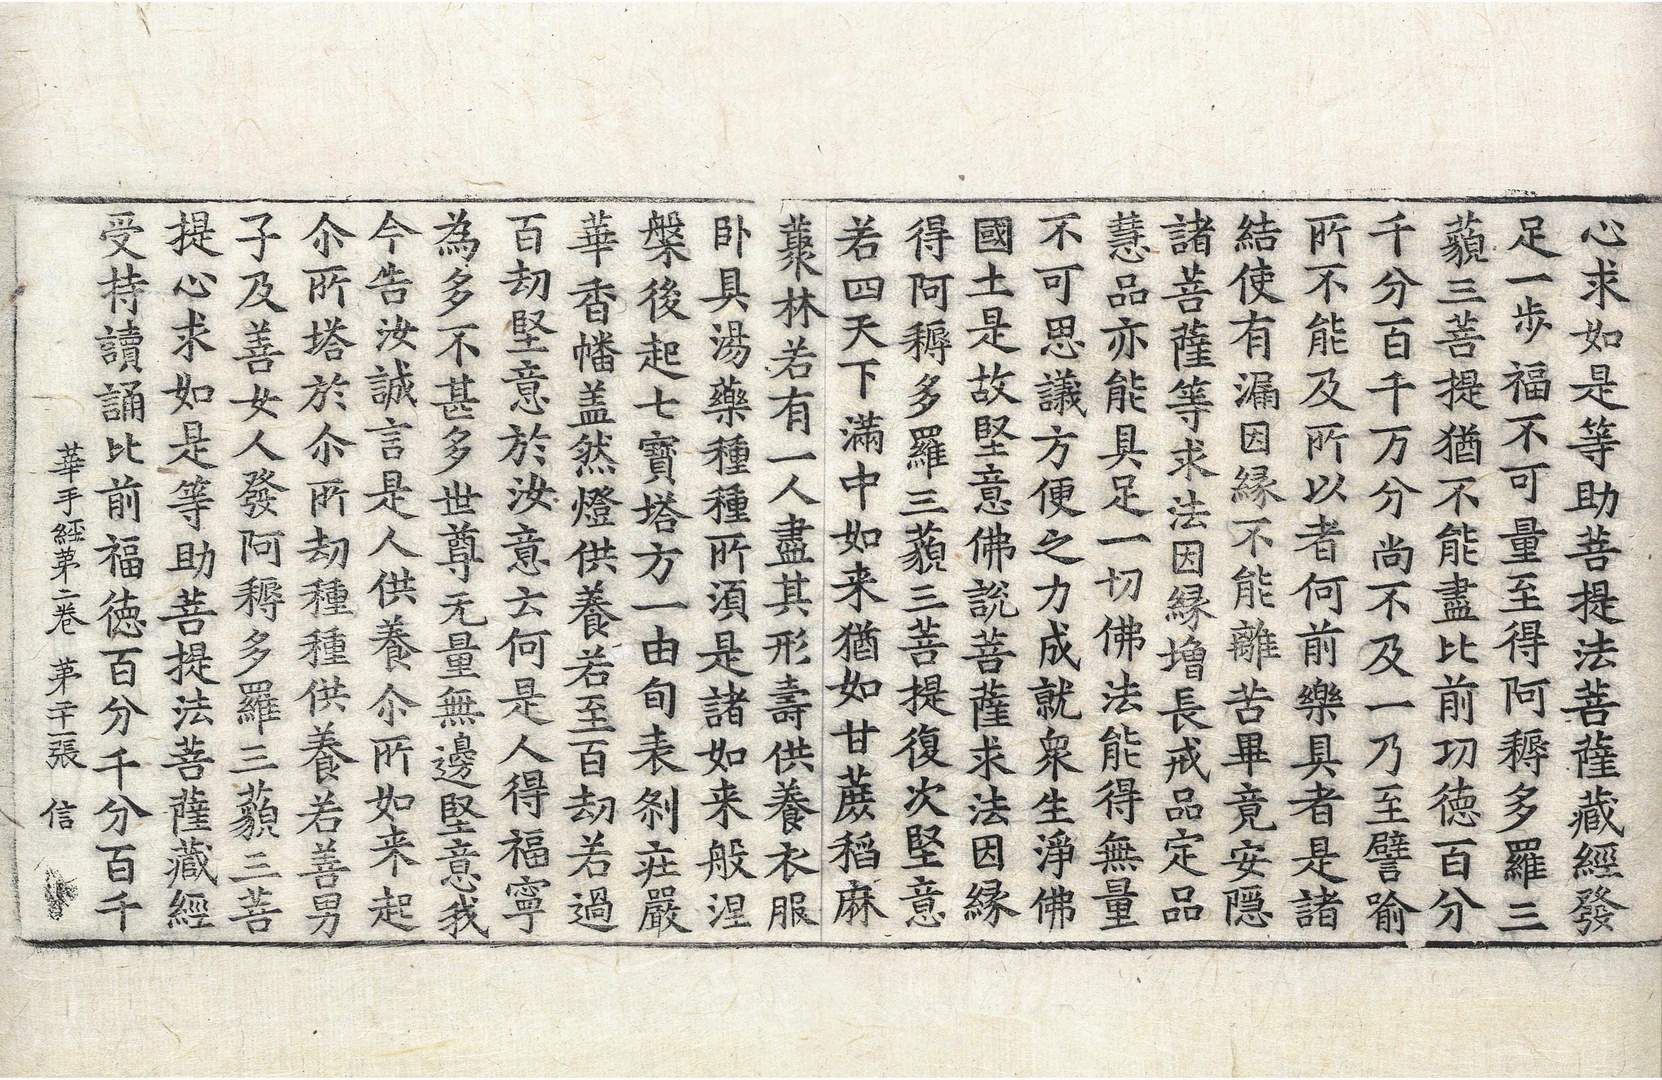 心求如是等助菩提法菩薩藏經發
足一步福不可量至得阿耨多羅三
藐三菩提猶不能盡比前功德百分
千分百千万分尚不及一乃至譬喻
所不能及所以者何前樂具者是諸
結使有漏因縁不能離苦畢竟安隱
諸菩薩等求法因縁增長戒品定品
慧品亦能具足一切佛法能得無量
不可思議方便之力成就衆生淨佛
國土是故堅意佛說菩薩求法因縁
得阿耨多羅三藐三菩提復次堅意
若四天下滿中如来猶如甘蔗稻麻
藂林若有一人盡其形壽供養衣服
卧具湯藥種種所湏是諸如来般涅
槃後起七寶塔方一由旬表刹莊嚴
華香幡盖然燈供養若至百劫若過
百劫堅意於汝意云何是人得福寧
為多不甚多世尊无量無邊堅意我
今告汝誠言是人供養尒所如来起
尒所塔於尒所劫種種供養若善男
子及善女人發阿耨多羅三藐三菩
提心求如是等助菩提法菩薩藏經
受持讀誦比前福德百分千分百千
華手經第二卷 第二十二張 信